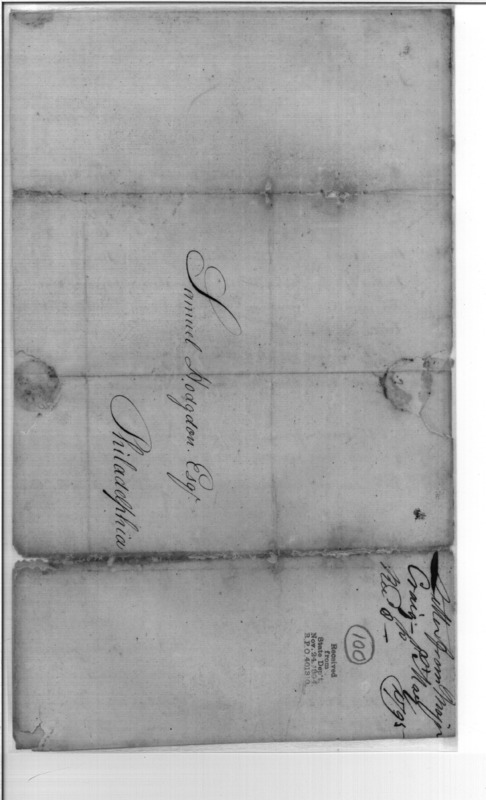 Samuel Hodgdon. Esqr
Philadelphia
Letter from Majr
Craig
May
1795
100
Received
from
State Dep't
Nov. 24,